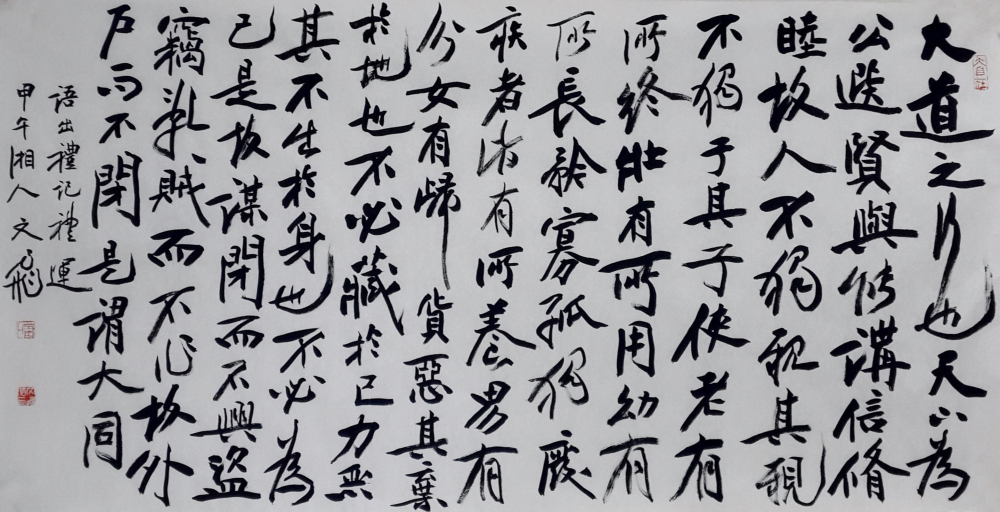 大道之行也天下為
公選賢與能講信脩
睦故人不獨親其親
不獨子其子使老有
所終壯有所用幼有
所長矜寡孤獨廢
疾者皆有所養男有
分女有歸貨惡其棄
於地也不必藏於己力惡
其不出於身也不必為
己是故謀閉而不興盜
竊亂賊而不作故外
戶而不閉是謂大同
語出禮記禮運
甲午湘人文飛